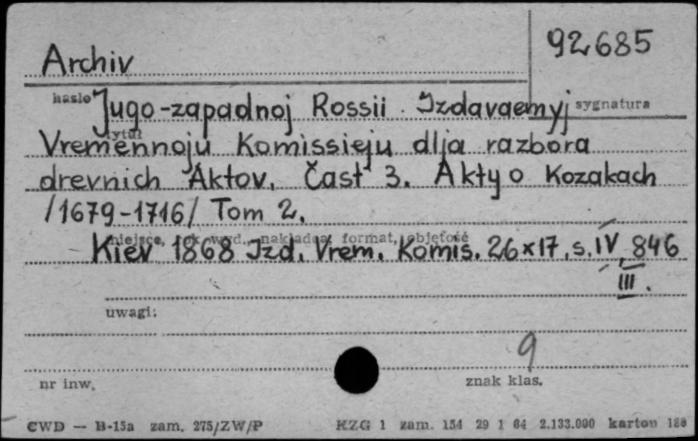 92685
Archiv
hasło sygnatura
Jugo-zapadnoj Rossii Izdavaemyj
tytuł
Vremennoju Komissieju dlja razbora
drevnich Aktov. Čast' 3. Akty o Kozakach
/1679-1716/ Tom 2.
miejsce, rok wyd., nakładca, format, objętość
Kiev 1868 Izd. Vrem. Komis. 26x17, s. IV, 846
III.
uwagi:
9
nr inw. znak klas.
CWD — B-15a zam. 275/ZW/P KZG 1 zam. 154 29 1 64 2.133.000 karton